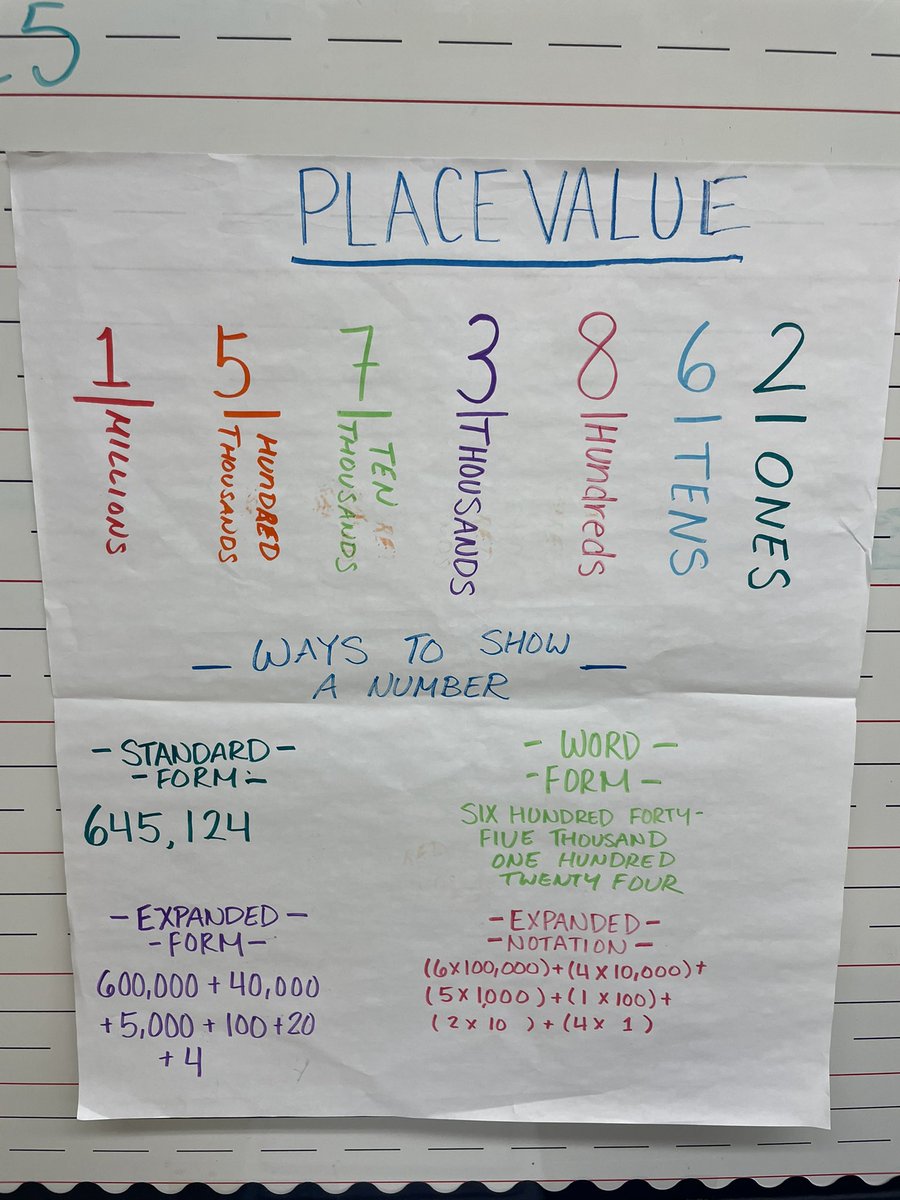 25
PLACE VALUE
1 5 7 3 8 6 2
MILLIONS
HUNDRED
THOUSANDS
TEN
THOUSANDS
THOUSANDS
Hundreds
TENS
ONES
— WAYS TO SHOW —
A NUMBER
- STANDARD -
- FORM -
645,124
- WORD -
- FORM -
SIX HUNDRED FORTY-
FIVE THOUSAND
ONE HUNDRED
TWENTY FOUR
- EXPANDED -
- FORM -
600,000 + 40,000
+ 5,000 + 100 + 20
+ 4
- EXPANDED -
- NOTATION -
(6 x 100,000) + (4 x 10,000) +
(5 x 1,000) + (1 x 100) +
(2 x 10 ) + (4 x 1 )